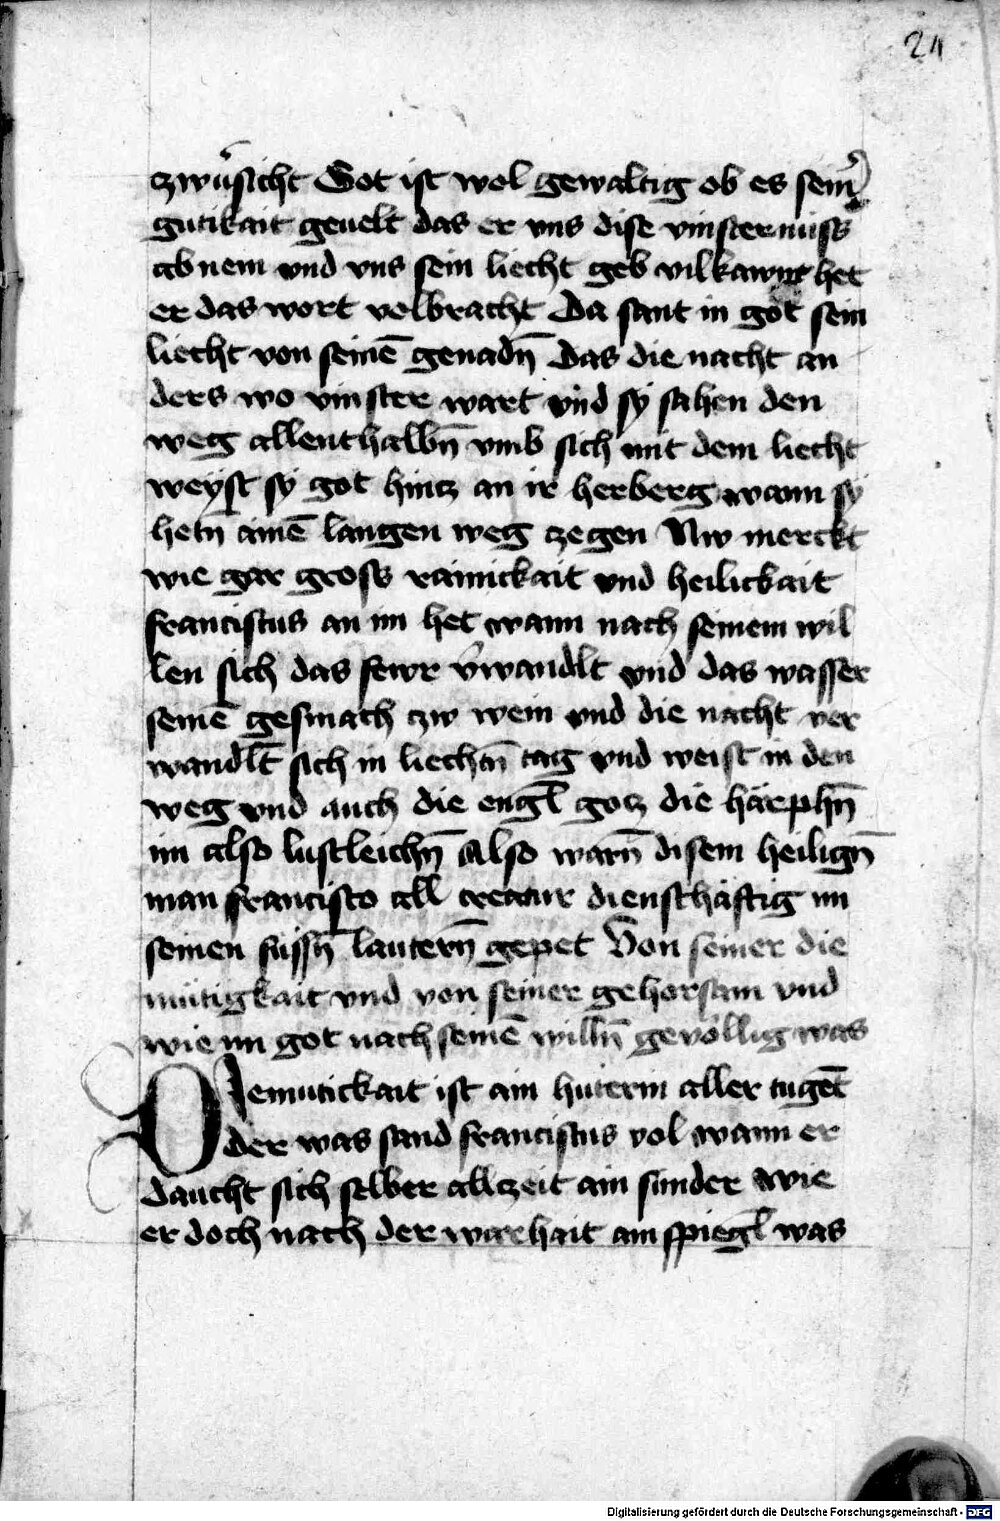 24
zwůsicht Got ist wol gewaltig ob es seinr̄
gutikait geuelt das er vns dise vinsternuss
ab nem vnd vns sein liecht geb vilkawm het
er das wort volbracht Da sant in got sein
liecht von seinē genadn̄ Das die nacht an
ders wo vinster wart vnd sy sahen den
weg allenthalbn̄ vmb sich mit dem liecht
weyst sy got hintz an ir herberg wann sy
hetn̄ ainē langen weg ze gen Nw merckt
wie gar gross rainickait vnd heilickait
franciscus an im het wann nach seinem wil
len sich das fewr v̄wandlt vnd das wasser
seinē gesmach zw wein vnd die nacht ver
wandlt̄ sich in liechtn̄ tag vnd weist in den
weg vnd auch die engl̄ gotz die härphn̄
im also lustleichn̄ Also warn̄ disem heilign̄
man francisco all creatur diensthäftig im
seinen süssn̄ lautern̄ gepet Von seiner die
mütigkait vnd von seiner gehorsam vnd
wie im got nach seinē willn̄ geuöllig was
Diemutickait ist ain hüterin aller tugēt
der was sand franciscus vol wann er
daucht sich selber allzeit ain sunder wie
er doch nach der warhait ain spiegl̄ was
Digitalisierung gefördert durch die Deutsche Forschungsgemeinschaft - DFG